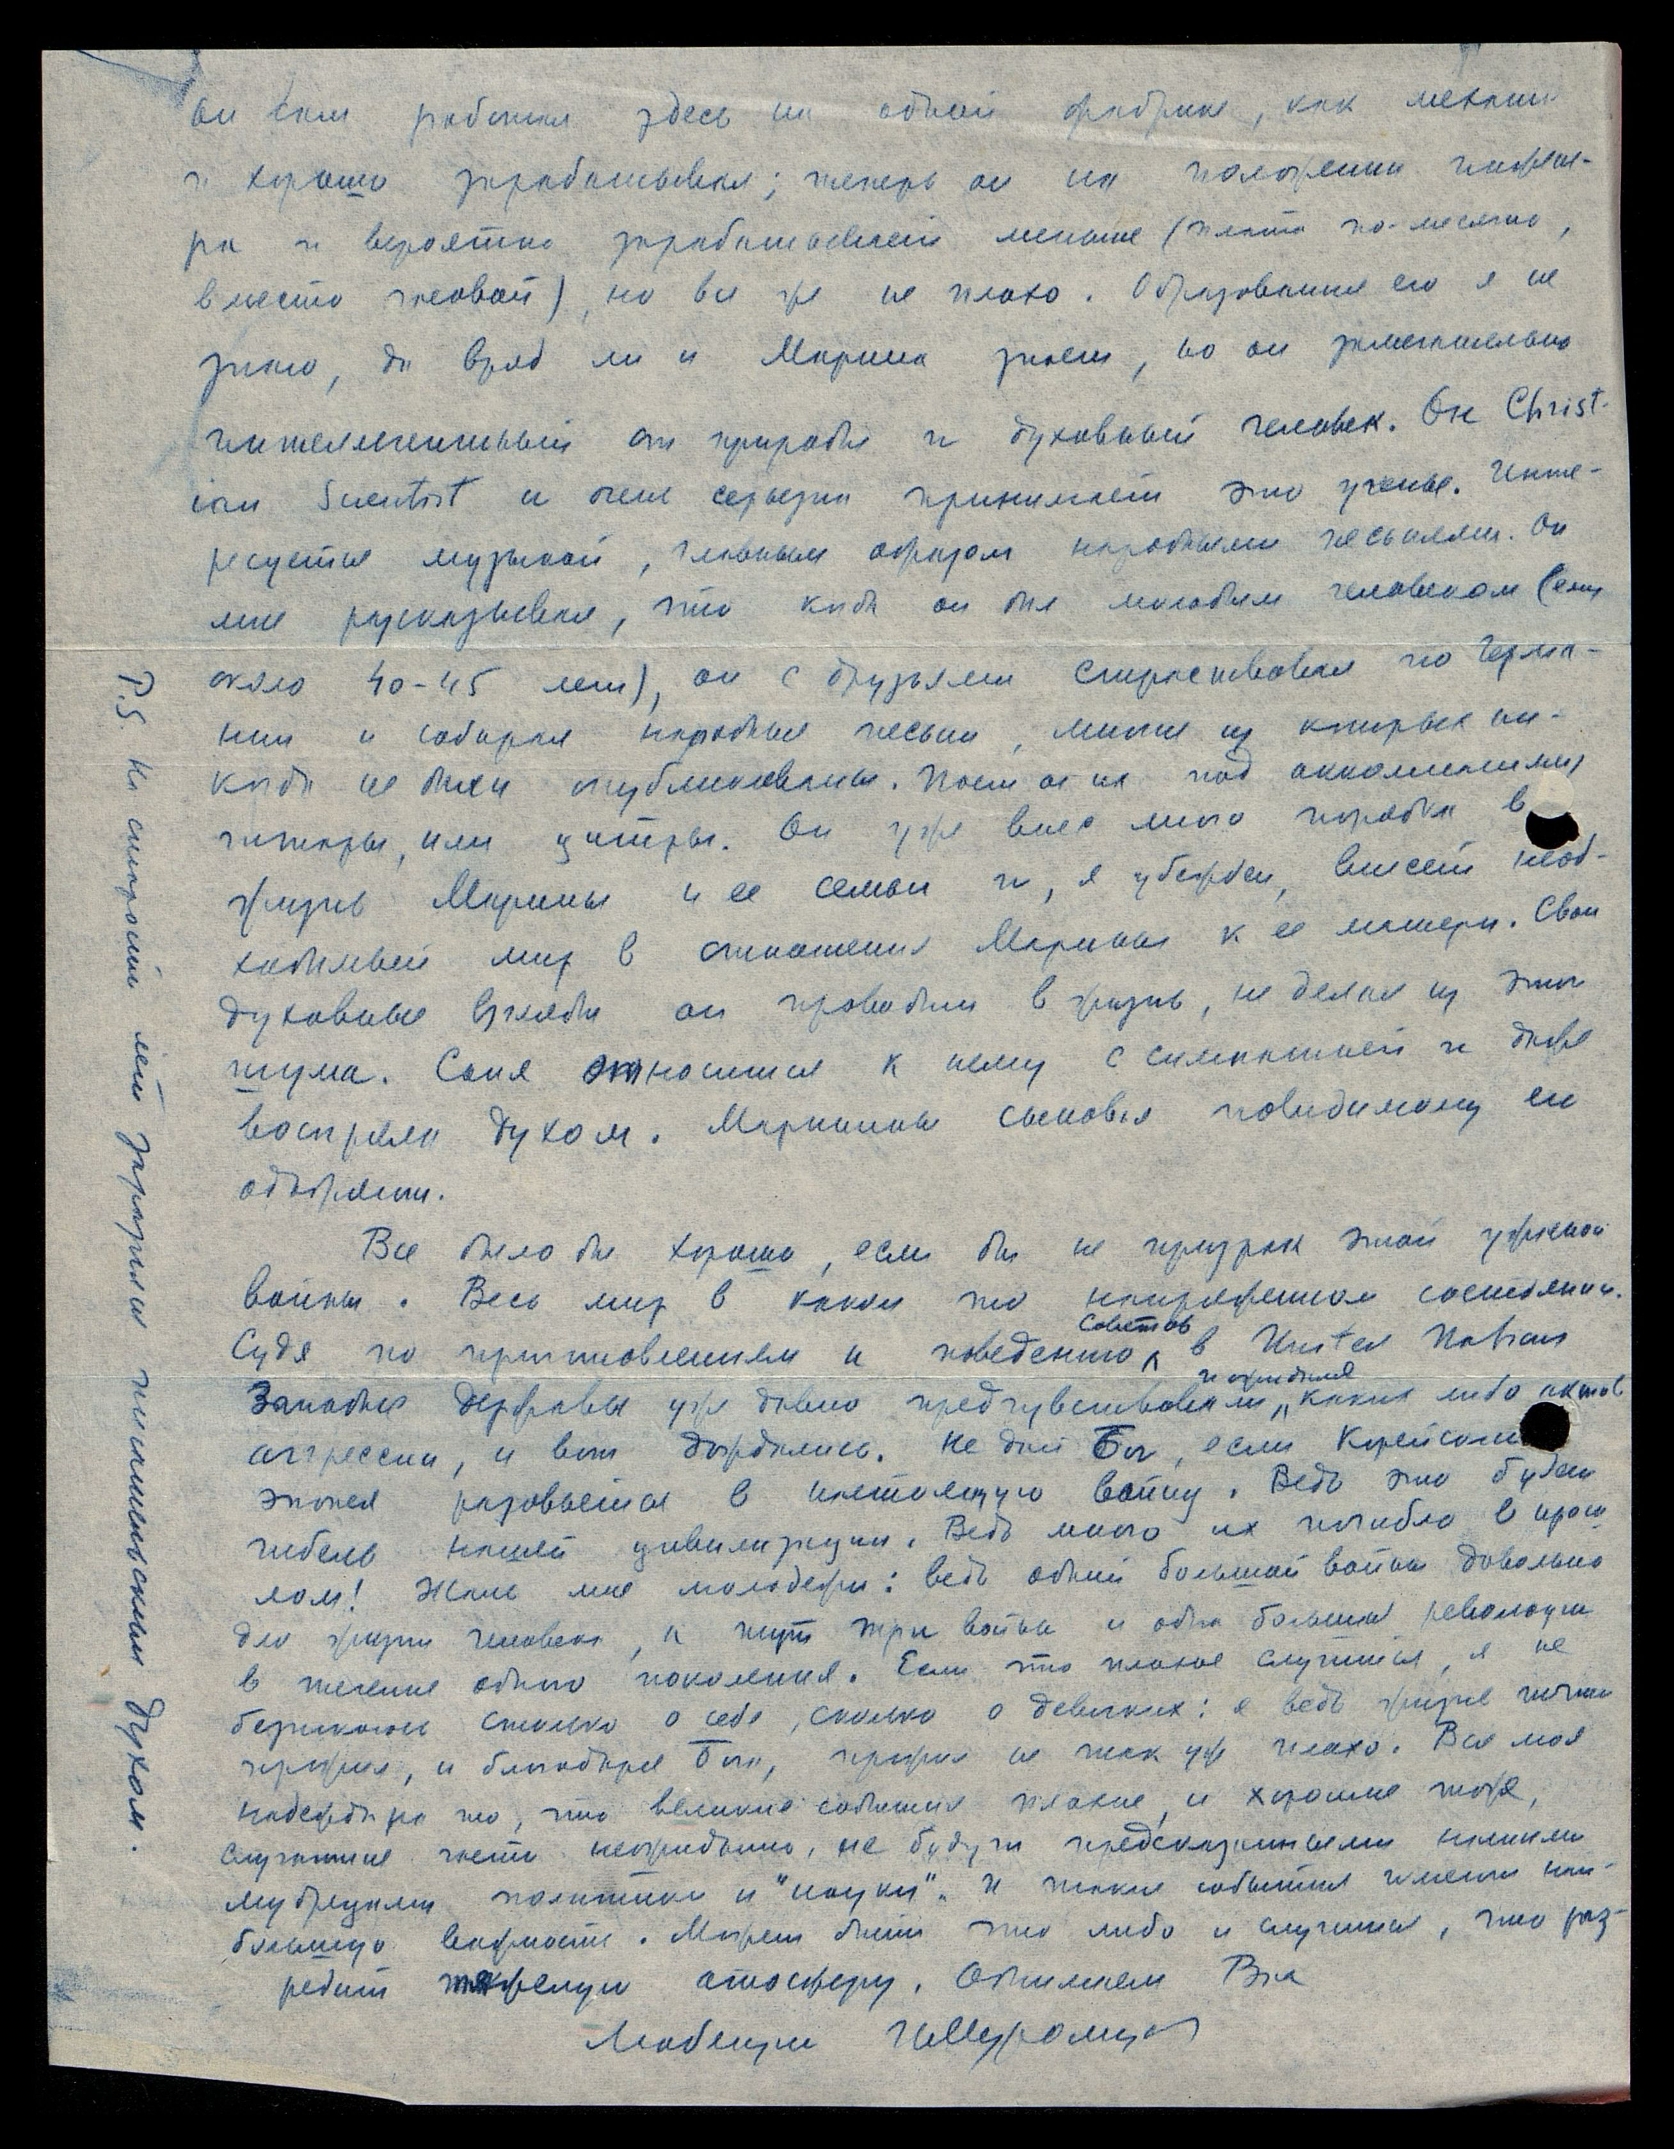 он сам работал здесь на одной фабрике, как механик
и хорошо зарабатывал; теперь он на положении инжене-
ра и вероятно зарабатывает меньше (плата по-месячно,
вместо часовой), но все же не плохо. Образования его я не
знаю, да вряд ли и Марина знает, но он замечательно
интеллигентный от природы и духовный человек. Он Christ-
ian Scientist и очень серьезно принимает это ученье. Инте-
ресуется музыкой, главным образом народными песнями. Он
мне рассказывал, что когда он был молодым человеком (ему
около 40-45 лет), он с друзьями странствовал по Герма-
нии и собирал народные песни, многие из которых ни-
когда не были опубликованы. Поет он их под аккомпанимент
гитары, или цитры. Он уже внес много порядка в
жизнь Марины и ее семьи и, я убежден, внесет необ-
ходимый мир в отношения Марины к ее матери. Свои
духовные взгляды он проводит в жизнь, не делая из этого
шума. Соня относится к нему с симпатией и даже
воспряла духом. Маринины сыновья повидимому его
обожают.
Все было бы хорошо, если бы не призрак этой ужасной
войны. Весь мир в каком то напряженном состоянии.
Судя по приготовлениям и поведению Советов в United Nations
Западные державы уже давно предчувствовали и ожидали каких либо актов
аггрессии, и вот дождались. Не дай Бог, если Корейская
эпопея разовьется в настоящую войну. Ведь это будет
гибель нашей цивилизации. Ведь много их погибло в прош-
лом! Жаль мне молодежи: ведь одной большой войны довольно
для жизни человека, а тут три войны и одна большая революция
в течение одного поколения. Если что плохое случится, я не
безпокоюсь столько о себе, сколько о девочках: я ведь жизнь почти
прожил, и благодаря Бога, прожил не так уж плохо. Вся моя
надежда на то, что великие события плохие, и хорошие тоже,
случаются часто неожиданно, не будучи предсказанными нашими
мудрецами политики и "науки". И такие события имеют наи-
большую важность. Может быть что либо и случится, что раз-
редит тяжелую атмосферу. Обнимаем Вас
Любящий
P.S. На старости лет заразился писательским духом.